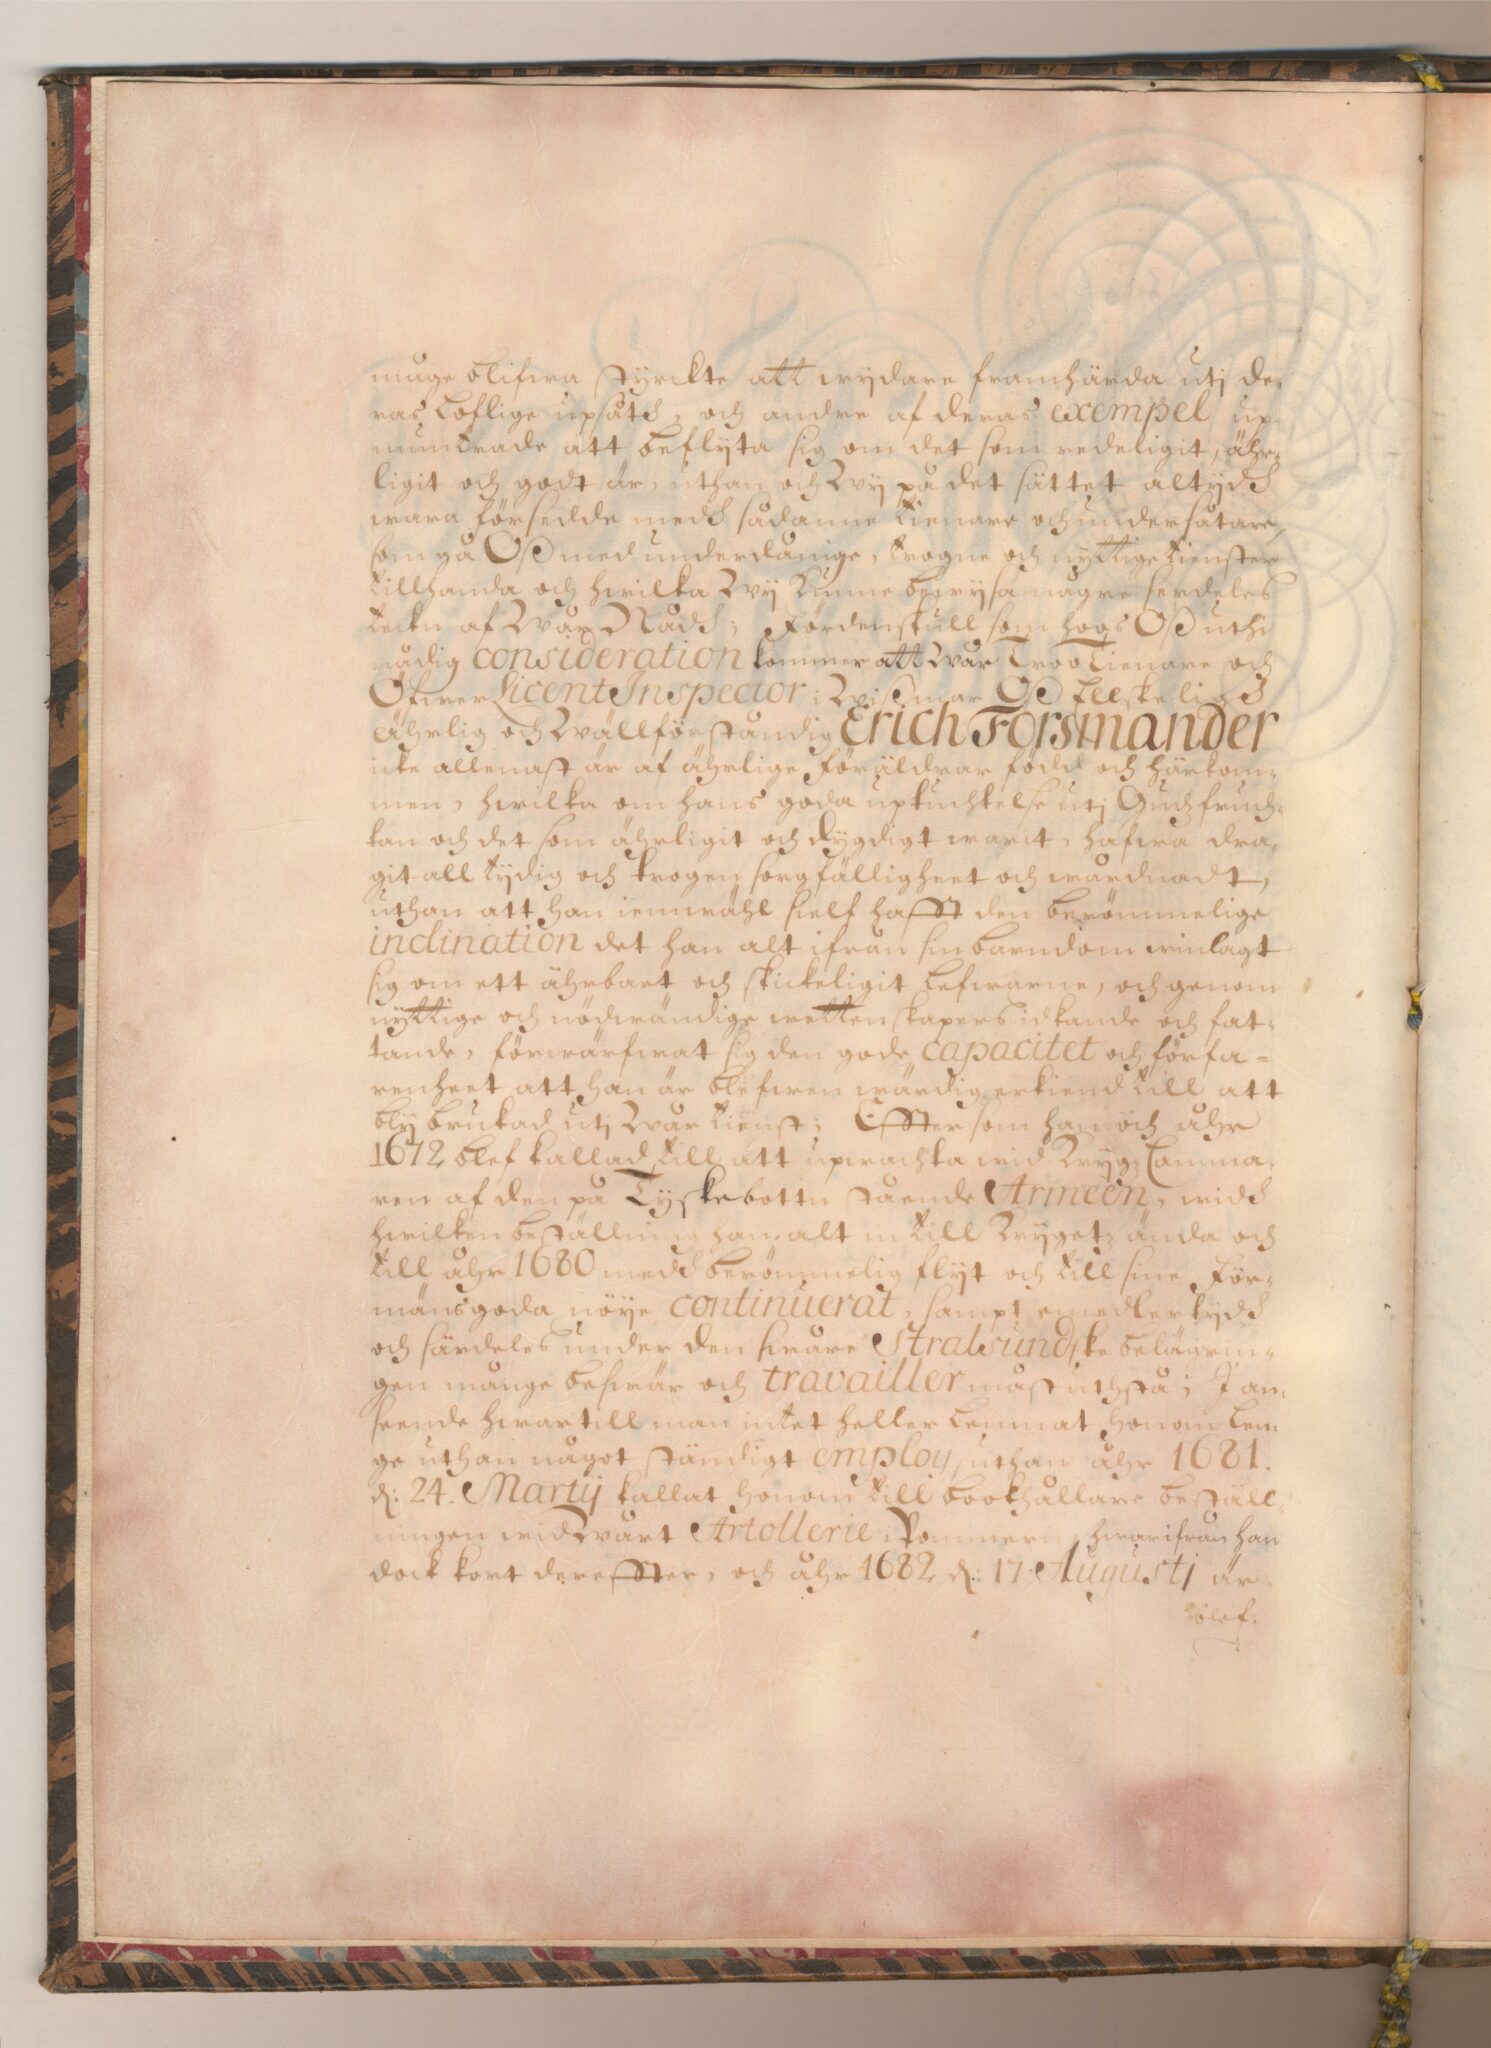 måge blifwa styrckte att wydare framhärda utj de-
ras loflige upsåth, och andre af deras exempel up-
muntrade att beflyta sig om det som redeligit, ähr-
ligit och godt är, uthan och Wij på det sättet altydh
wara försedde medh sådanne tienare och undersåtare,
som gå Oß med underdånige, trogne och nyttige tienster
tillhanda och hwilka Wij kunne bewysa någre serdeles
teckn af Wår Nådh; Fördenskull som hoos Oß uthi
nådig consideration kommer att Wår Troo Tienare och
Öfwer Licent Inspector i Wißmar Oß
ährlig och Wällförståndig Erich Forsmander
icke allenast är af ährlige föräldrar född och härkom-
men, hwilka om hans goda uptuchtelse utj Gudzfruch-
tan och det som ährligit och dygdigt warit, hafwa dra-
git all tydig och trogen sorgfälligheet och wårdnadt,
uthan att han iemwähl sielf hafft den berömmelige
inclination det han alt ifrån sin barndom winlagt
sig om ett ährbart och skickeligit lefwarne, och genom
nyttige och nödwändige wettenskapers idkande och fat-
tande, förwärfwat sig den gode capacitet och förfa-
renheet att han är blefwen wärdig erkiend till att
bly brukad utj Wår tienst; Effter som han och åhr
1672 blef kallad till att upwachta wid Krygz Camma-
ren af den på Tyskebottn stående Armeen, widh
hwilken beställning han alt in till Krygetz ända och
till åhr 1680 medh berömmelig flyt och till sine För-
mäns goda nöye continuerat, sampt emedlertydh
och särdeles under den swåre Stralsundske belägrin-
gen månge beswär och travailler måst uthstå; I an-
seende hwartill man intet heller lemnat honom len-
ge uthan något ständigt employ, uthan åhr 1681.
d. 24. Martij kallat honom till bookhållare beställ-
ningen wid Wårt Artollerie i Pommern, hwarifrån han
dock kort dereffter, och åhr 1682 d. 17 Augustj är
blef: